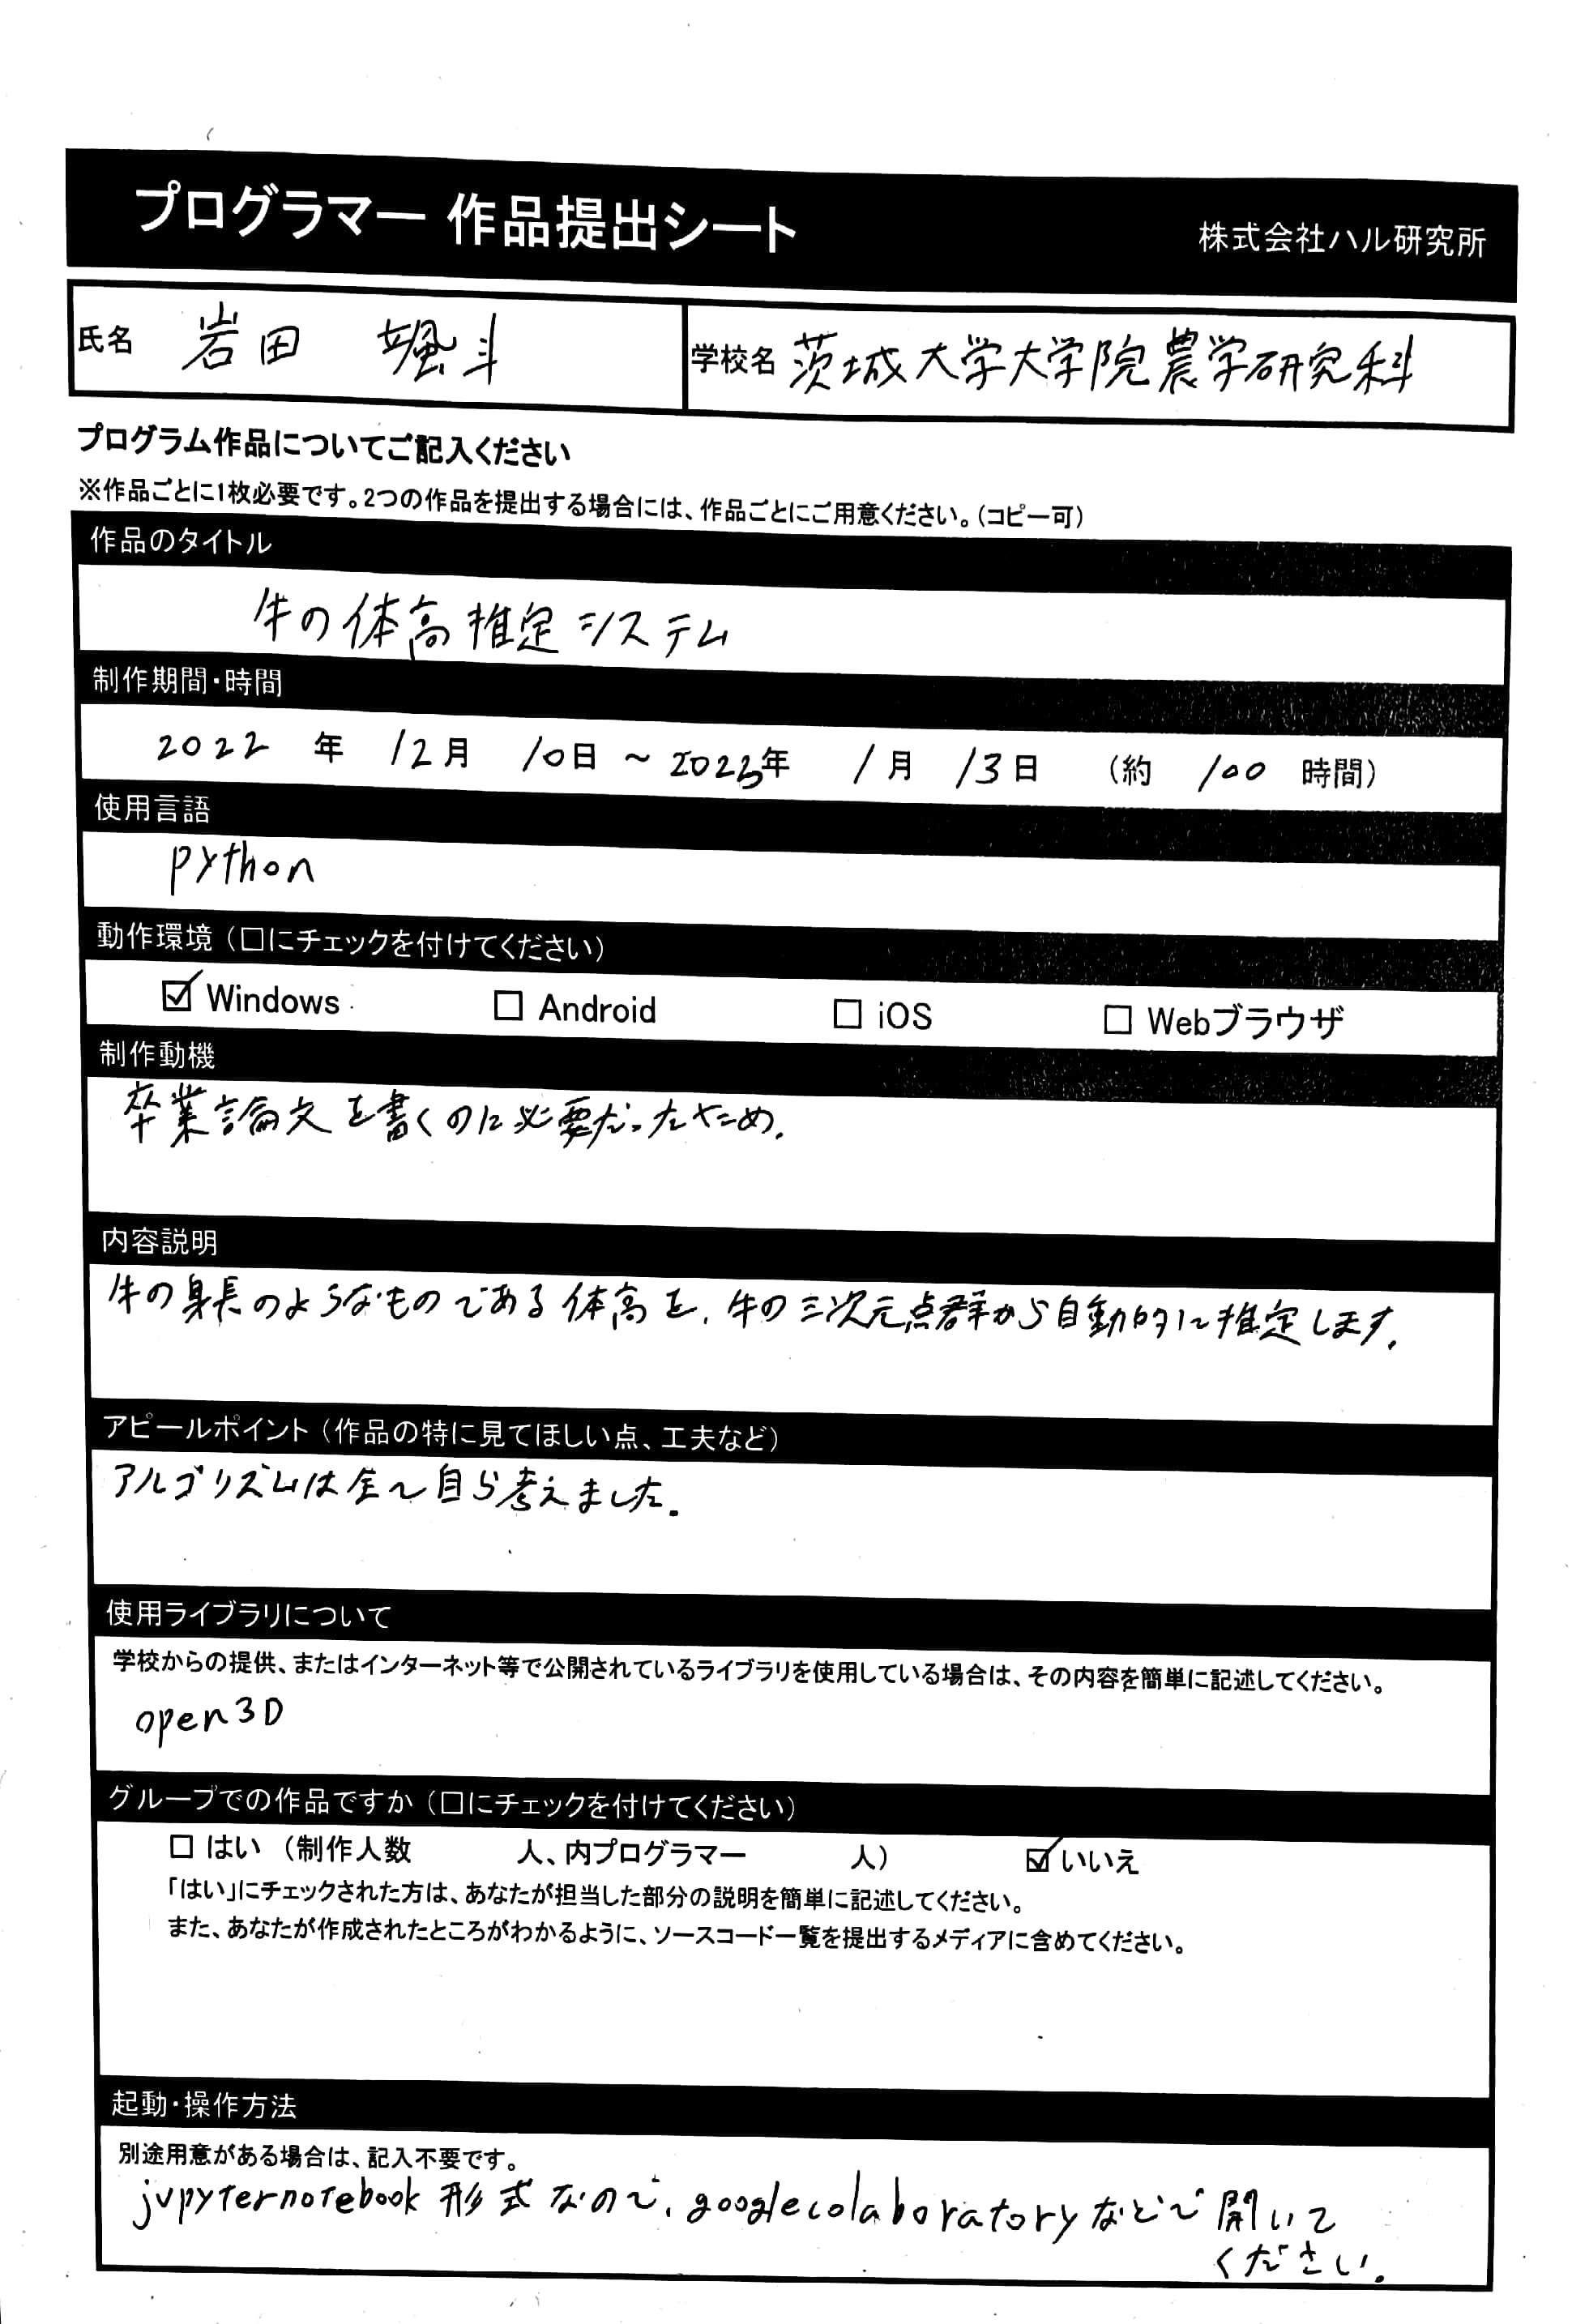 プログラマー 作品提出シート
株式会社ハル研究所
氏名 岩田 颯斗
学校名 茨城大学大学院農学研究科
プログラム作品についてご記入ください
※作品ごとに1枚必要です。2つの作品を提出する場合には、作品ごとにご用意ください。(コピー可)
作品のタイトル
牛の体高推定システム
制作期間・時間
2022 年 12月 10日 ~ 2023年 1月 13日 (約 100 時間)
使用言語
python
動作環境(□にチェックを付けてください)
☑ Windows □ Android □ iOS □ Webブラウザ
制作動機
卒業論文を書くのに必要だったため.
内容説明
牛の身長のようなものである体高を、牛の三次元点群から自動的に推定します.
アピールポイント(作品の特に見てほしい点、工夫など)
アルゴリズムは全て自ら考えました.
使用ライブラリについて
学校からの提供、またはインターネット等で公開されているライブラリを使用している場合は、その内容を簡単に記述してください。
open3D
グループでの作品ですか(□にチェックを付けてください)
□ はい (制作人数 人、内プログラマー 人) ☑ いいえ
「はい」にチェックされた方は、あなたが担当した部分の説明を簡単に記述してください。
また、あなたが作成されたところがわかるように、ソースコード一覧を提出するメディアに含めてください。
起動・操作方法
別途用意がある場合は、記入不要です。
jupyternotebook 形式なので、googlecolaboratoryなどで開いて
ください.